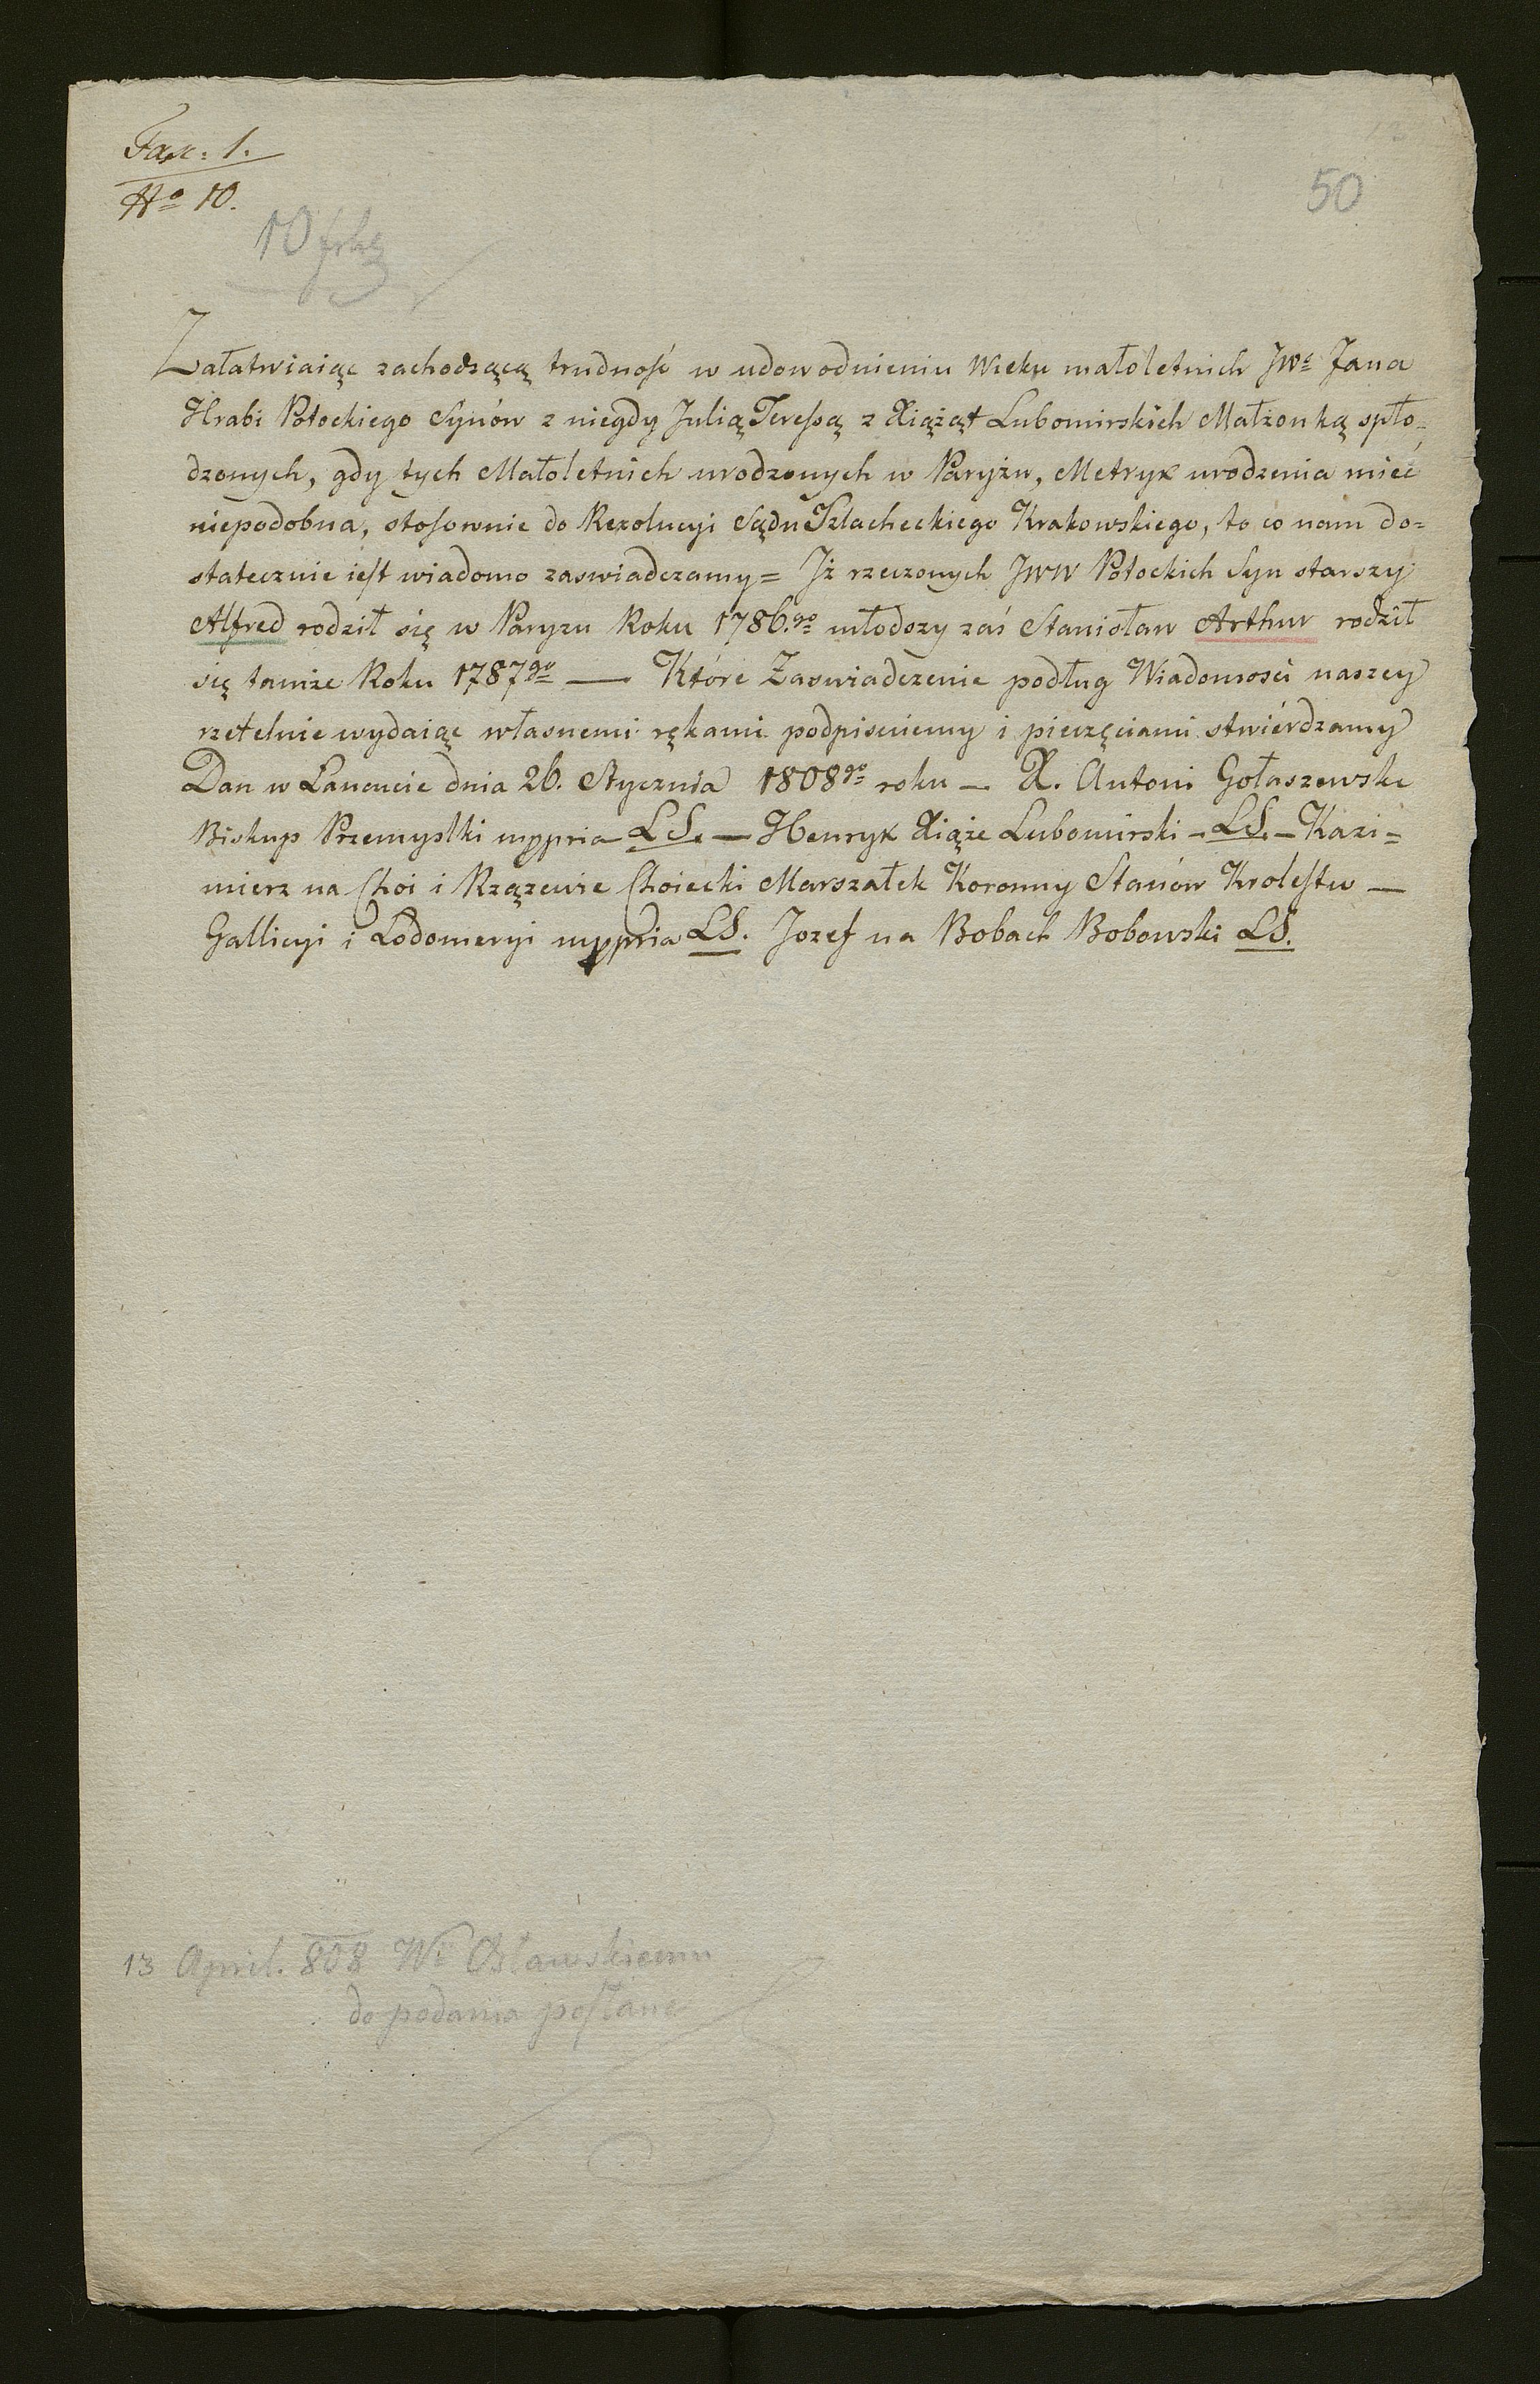 Fasc: 1.
No 10.
50
Załatwiaiąc zachodzącą trudność w udowodnieniu wieku małoletnich JWo Jana
Hrabi Potockiego Synów z niegdy Julią Teressą z Xiążąt Lubomirskich Małżonką spło-
dzonych, gdy tych Małoletnich urodzonych w Paryżu, Metryk urodzenia mieć
niepodobna, stosownie do Rezolucyi Sądu Szlacheckiego Krakowskiego, to co nam do=
statecznie iest wiadomo zaswiadczamy = Jż rzeczonych JWW Potockich Syn starszy
Alfred rodził się w Paryzu Roku 1786.go młodszy zaś Stanisław Arthur rodził
się tamże Roku 1787go — Które Zaswiadczenie podług Wiadomosci naszey
rzetelnie wydaiąc własnemi rękami podpisuiemy i pieczęciami stwiérdzamy
Dan w Łancucie dnia 26. Stycznia 1808go roku — X. Antoni Gołaszewski
Biskup Przemyslki mppria LS. — Henryk Xiąże Lubomirski — LS. — Kazi=
mierz na Choi i Rzązewie Choiecki Marszałek Koronny Stanów Krolestw —
Gallicyi i Lodomeryi mppria LS. Jozef na Bobach Bobowski LS.
13 April. 808 Wo
do podania posłane